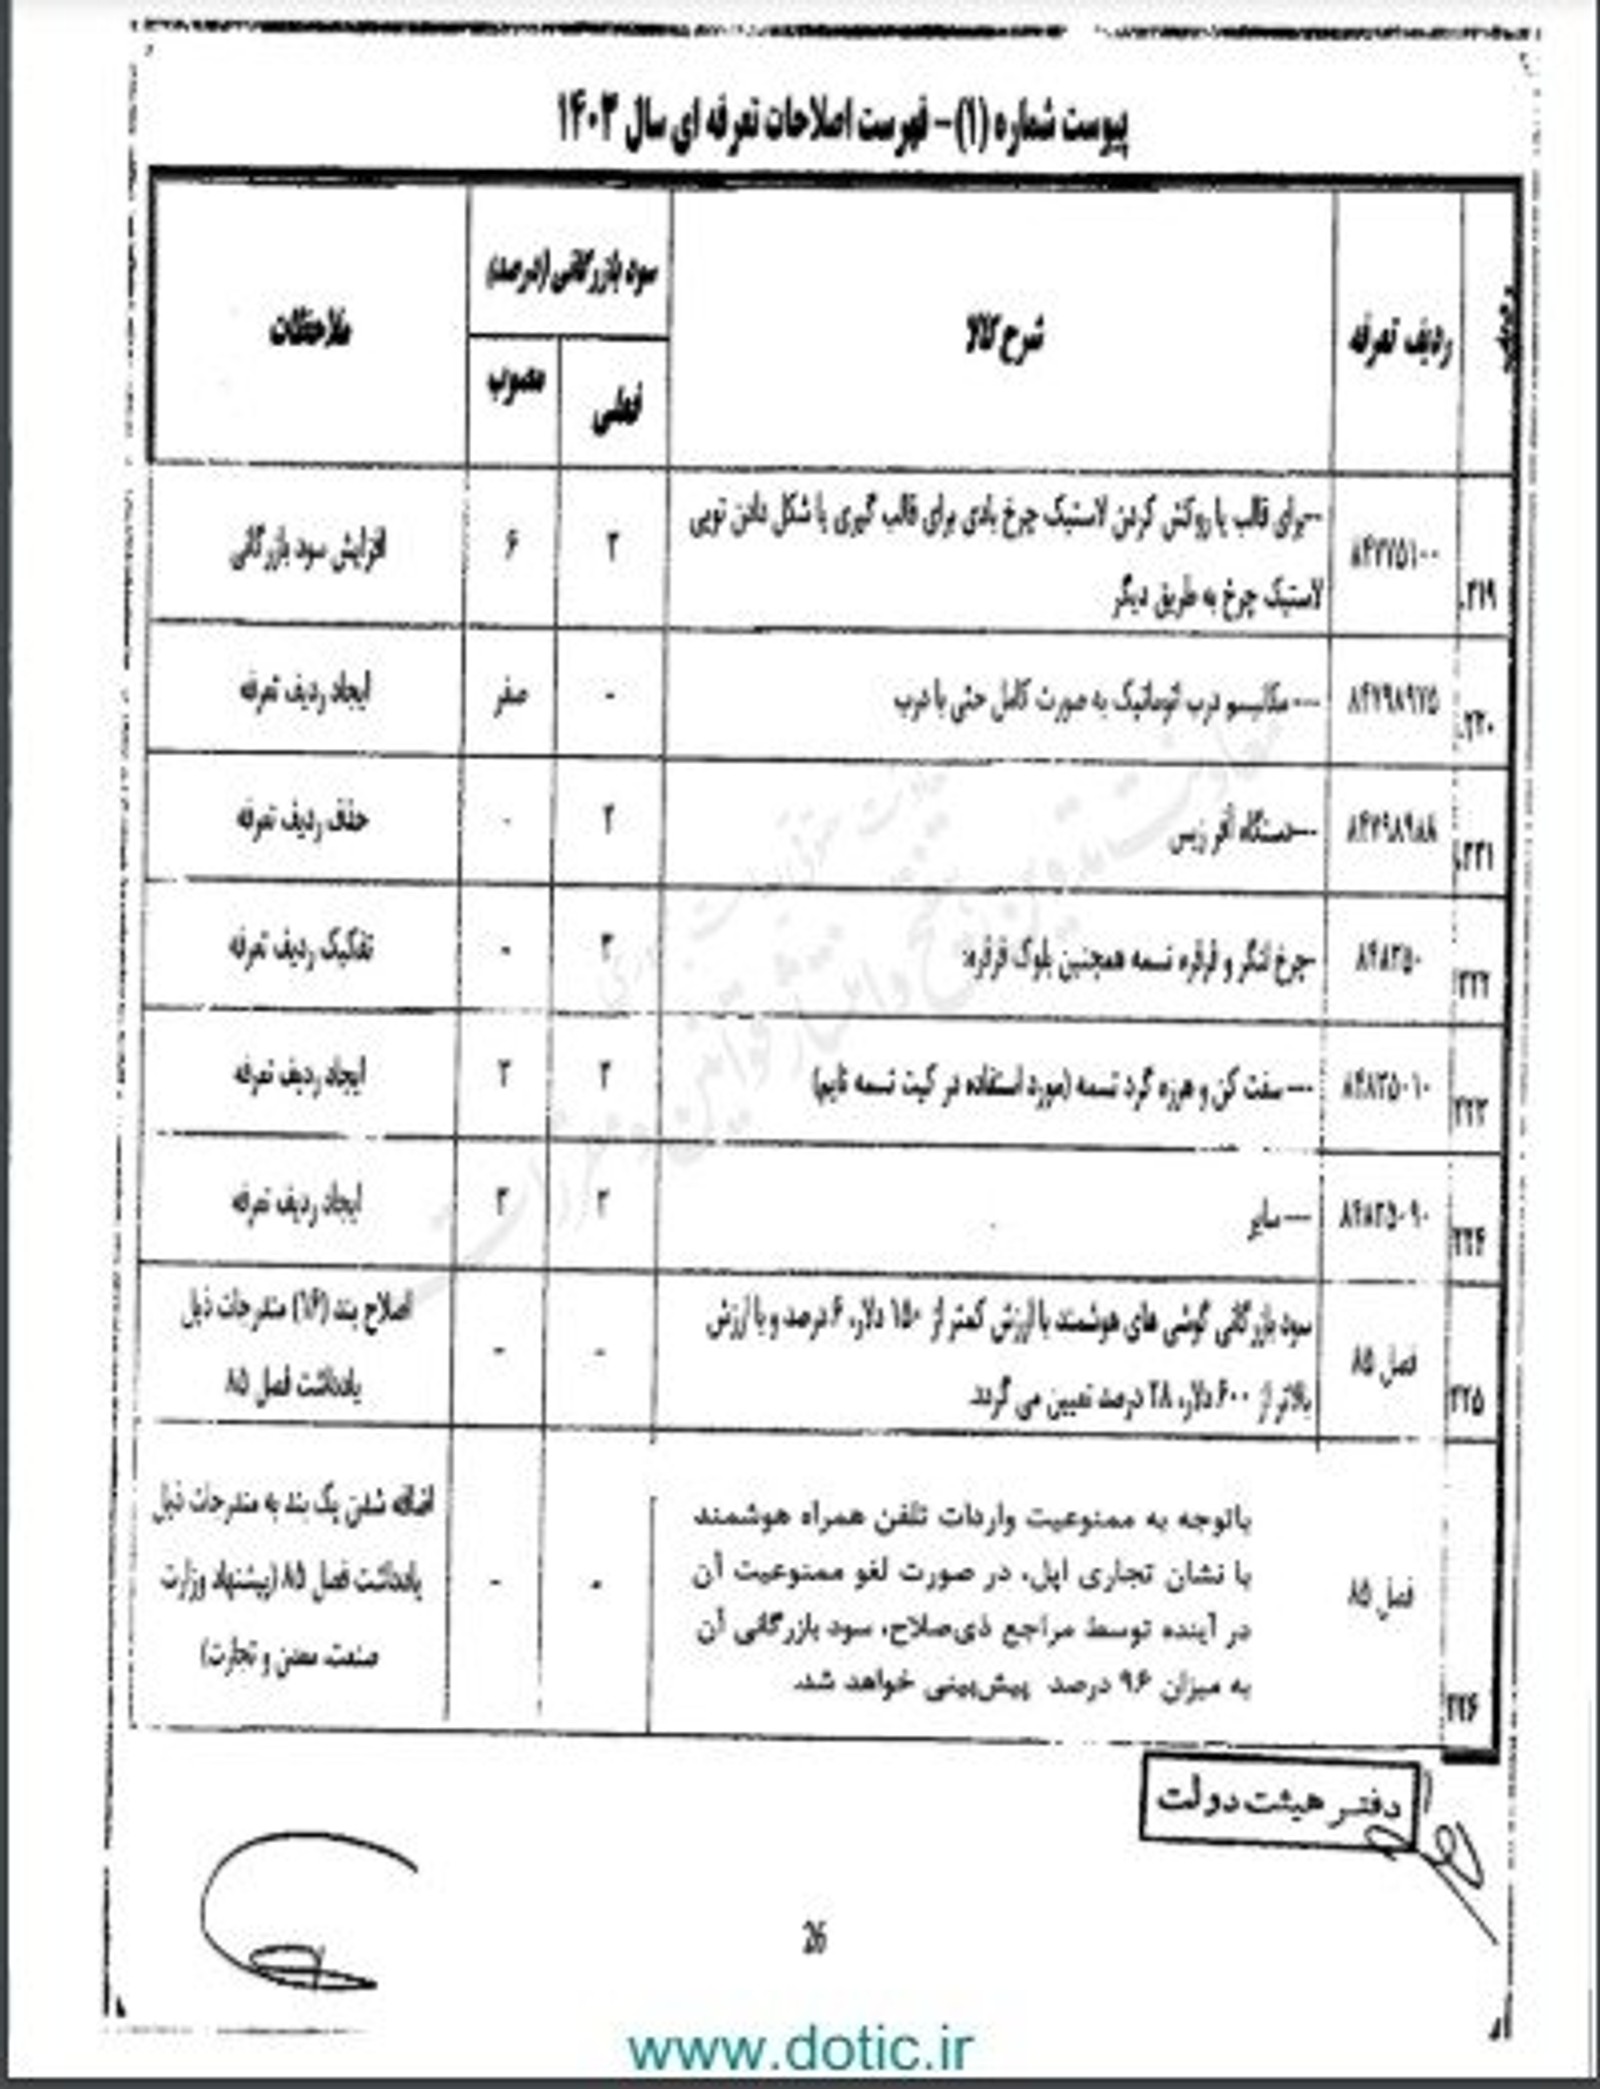 پیوست شماره (۱) – فهرست اصلاحات تعرفه ای سال ۱۴۰۳
ردیف تعرفه
شرح کالا
سود بازرگانی (درصد)
فعلی
مصوب
ملاحظات
۲۱۹.
۸۴۷۷۵۱۰۰
--برای قالب یا روکش کردن لاستیک چرخ بادی برای قالب گیری یا شکل دادن تویی
لاستیک چرخ به طریق دیگر
۳
۶
افزایش سود بازرگانی
۲۲۰.
۸۴۷۹۸۹۷۵
--- مکانیسم درب اتوماتیک به صورت کامل حتی با درب
-
صفر
ایجاد ردیف تعرفه
۲۲۱.
۸۴۷۹۸۹۸۸
---دستگاه آفر زیس
۲
-
حذف ردیف تعرفه
۲۲۲
۸۴۸۳۵۰
-چرخ لنگر و قرقره تسمه همچنین بلوک قرقره:
۳
-
تفکیک ردیف تعرفه
۲۲۳
۸۴۸۳۵۰۱۰
--- سفت کن و هرزه گرد تسمه (مورد استفاده در کیت تسمه تایم)
۳
۳
ایجاد ردیف تعرفه
۲۲۴
۸۴۸۳۵۰۹۰
--- سایر
۳
۳
ایجاد ردیف تعرفه
۲۲۵
فصل ۸۵
سود بازرگانی گوشی های هوشمند با ارزش کمتر از ۱۵۰ دلار، ۶ درصد و با ارزش
بالاتر از ۶۰۰ دلار، ۲۸ درصد تعیین می گردد.
-
-
اصلاح بند (۱۶) مندرجات ذیل
یادداشت فصل ۸۵
۲۲۶
فصل ۸۵
باتوجه به ممنوعیت واردات تلفن همراه هوشمند
با نشان تجاری اپل، در صورت لغو ممنوعیت آن
در آینده توسط مراجع ذی‌صلاح، سود بازرگانی آن
به میزان ۹۶ درصد پیش‌بینی خواهد شد.
-
-
اضافه شدن یک بند به مندرجات ذیل
یادداشت فصل ۸۵ (پیشنهاد وزارت
صنعت، معدن و تجارت)
دفتر هیئت دولت
26
www.dotic.ir